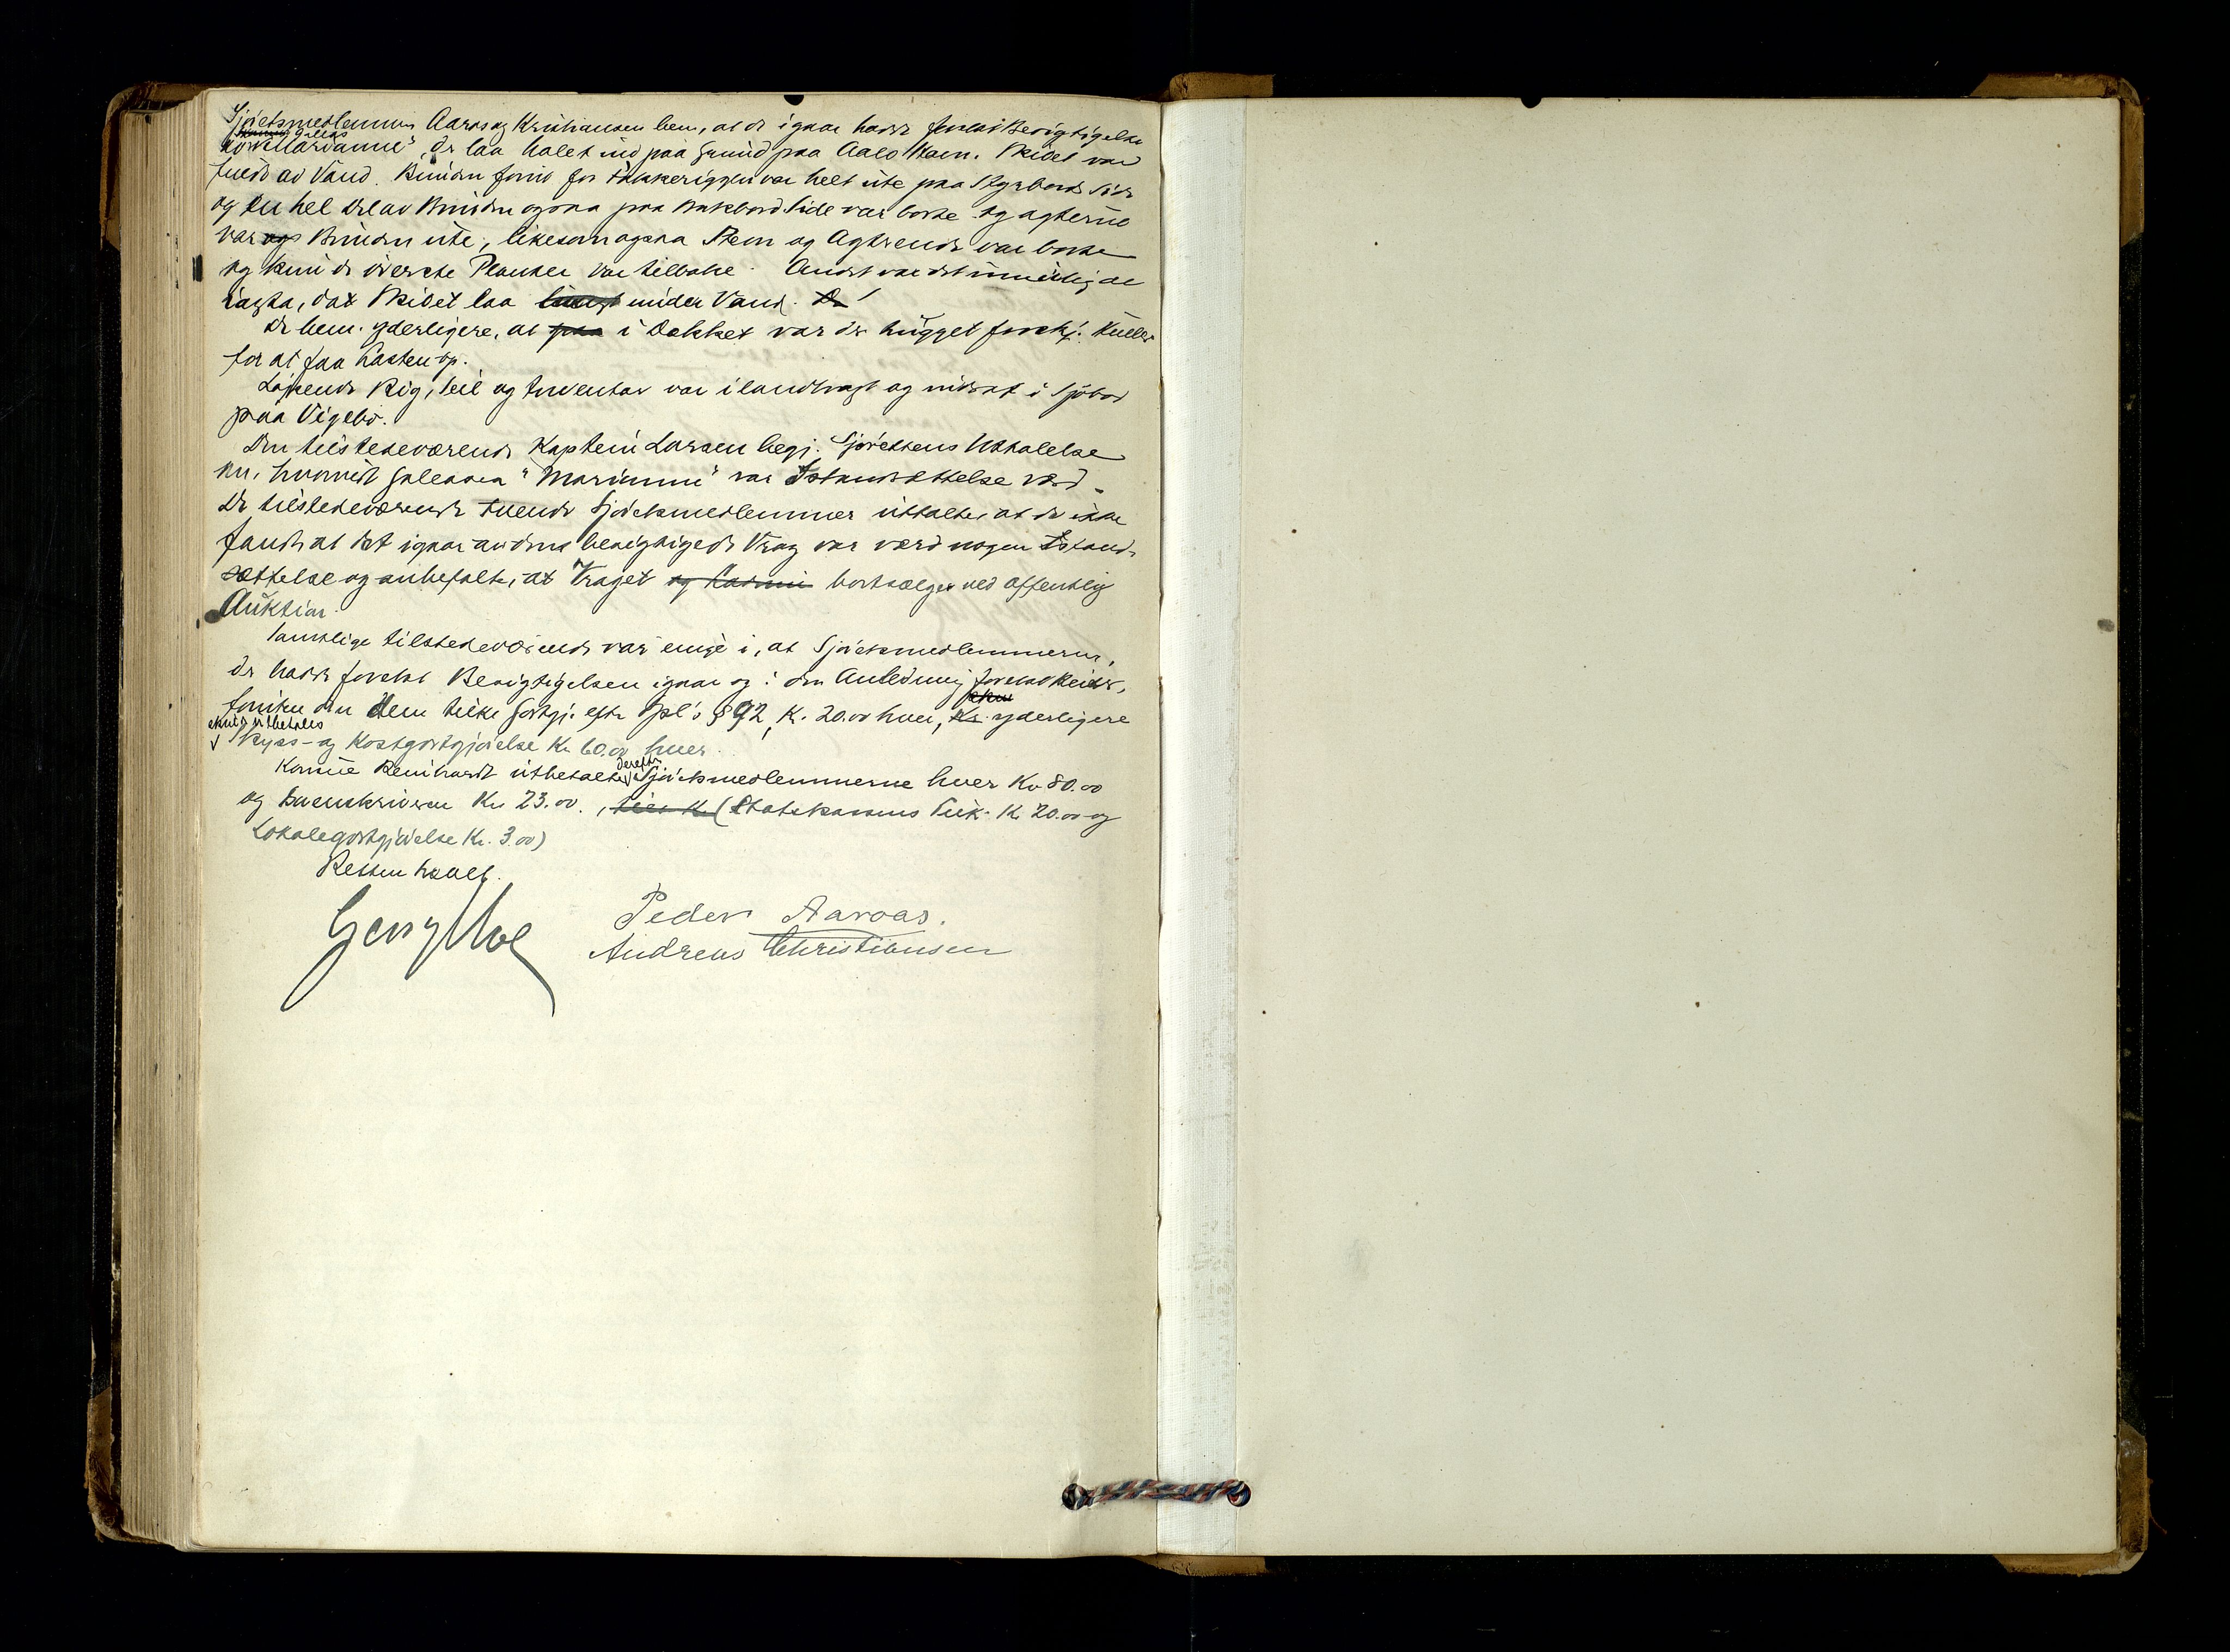 Sjøretsmedlemmerne Aaros og Kristiansen bem., at de igaar hadde foretat Besigtigelse
"Marianne", der laa halet ind paa Grund paa Aalo Havn. Skibet var
fuldt av Vand. Bunden forut for Fokkeriggen var helt ute paa Styrbords Side
og en hel Del av Bunden ogsaa paa Bakbord Side var borte og agterut
var ogs Bunden ute, likesom ogsaa Stevn og Agterende var borte
og kun de øverste Planker var tilbake. Andet var det umulig at
iagta, da Skibet laa under Vand. De
De bem. yderligere, at paa i Dækket var der hugget forskj. Huller
for at faa Lasten op.
Løpende Rig, Seil og Inventar var ilandbragt og nedsat i Sjøbod
paa Vigebø.
Den tilstedeværende Kaptein Larsen begj. Sjørettens Uttalelse
om, hvorvidt Galeasen "Marianne" var Istandsættelse værd.
De tilstedeværende tvende Sjøretsmedlemmer uttalte, at de ikke
fandt at det igaar av dem besigtigede Vrag var værd nogen Istand-
sættelse og anbefalte, at Vraget og bortsælges ved offentlig
Auktion.
Samtlige tilstedeværende var enige i, at Sjøretsmedlemmerne,
der hadde foretat Besigtigelsen igaar og i den Anledning foretat Reise,
foruten den dem tilk. Godtgj. efter Spl's § 92, Kr. 20.00 hver, Kr. yderligere
skulde utbetales
Reise- og Kostgodtgjørelse Kr. 60.00 hver.
Konsul Reinhardt utbetalte derefter Sjøretsmedlemmerne hver Kr. 80.00
og Sorenskriveren Kr. 23.00, (Statskassens Tilk. Kr. 20.00 og
Lokalegodtgjørelse Kr. 3.00)
Retten hævet.
Peder Aaroas.
Andreas Christiansen